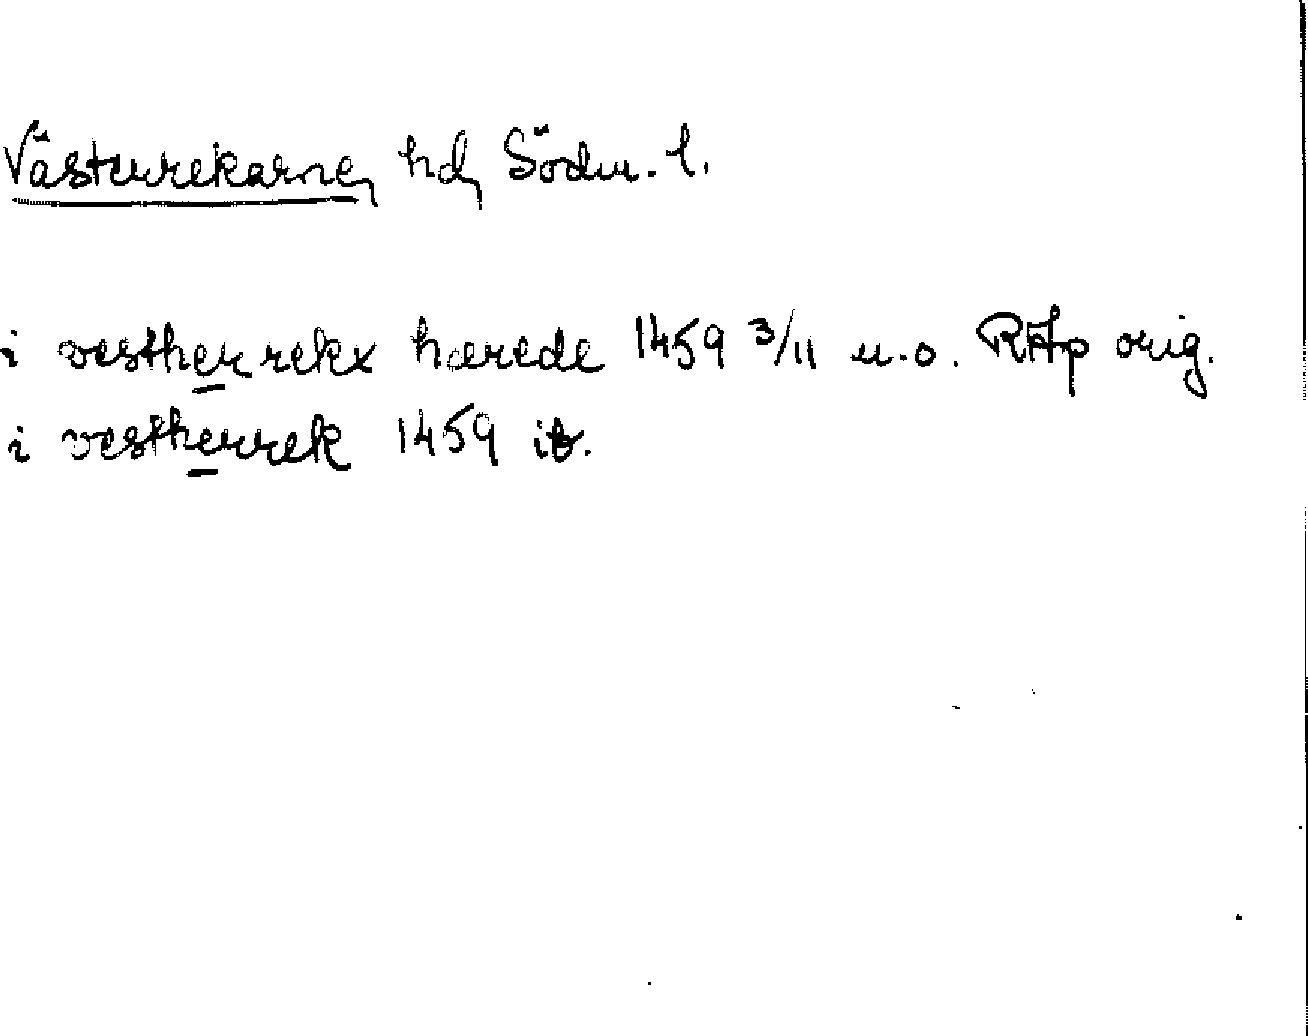 Västerrekarne, hd, Södm. l.
i vestherrekx hærede 1459 3/11 u.o. RAp orig.
i vestherrek 1459 ib.